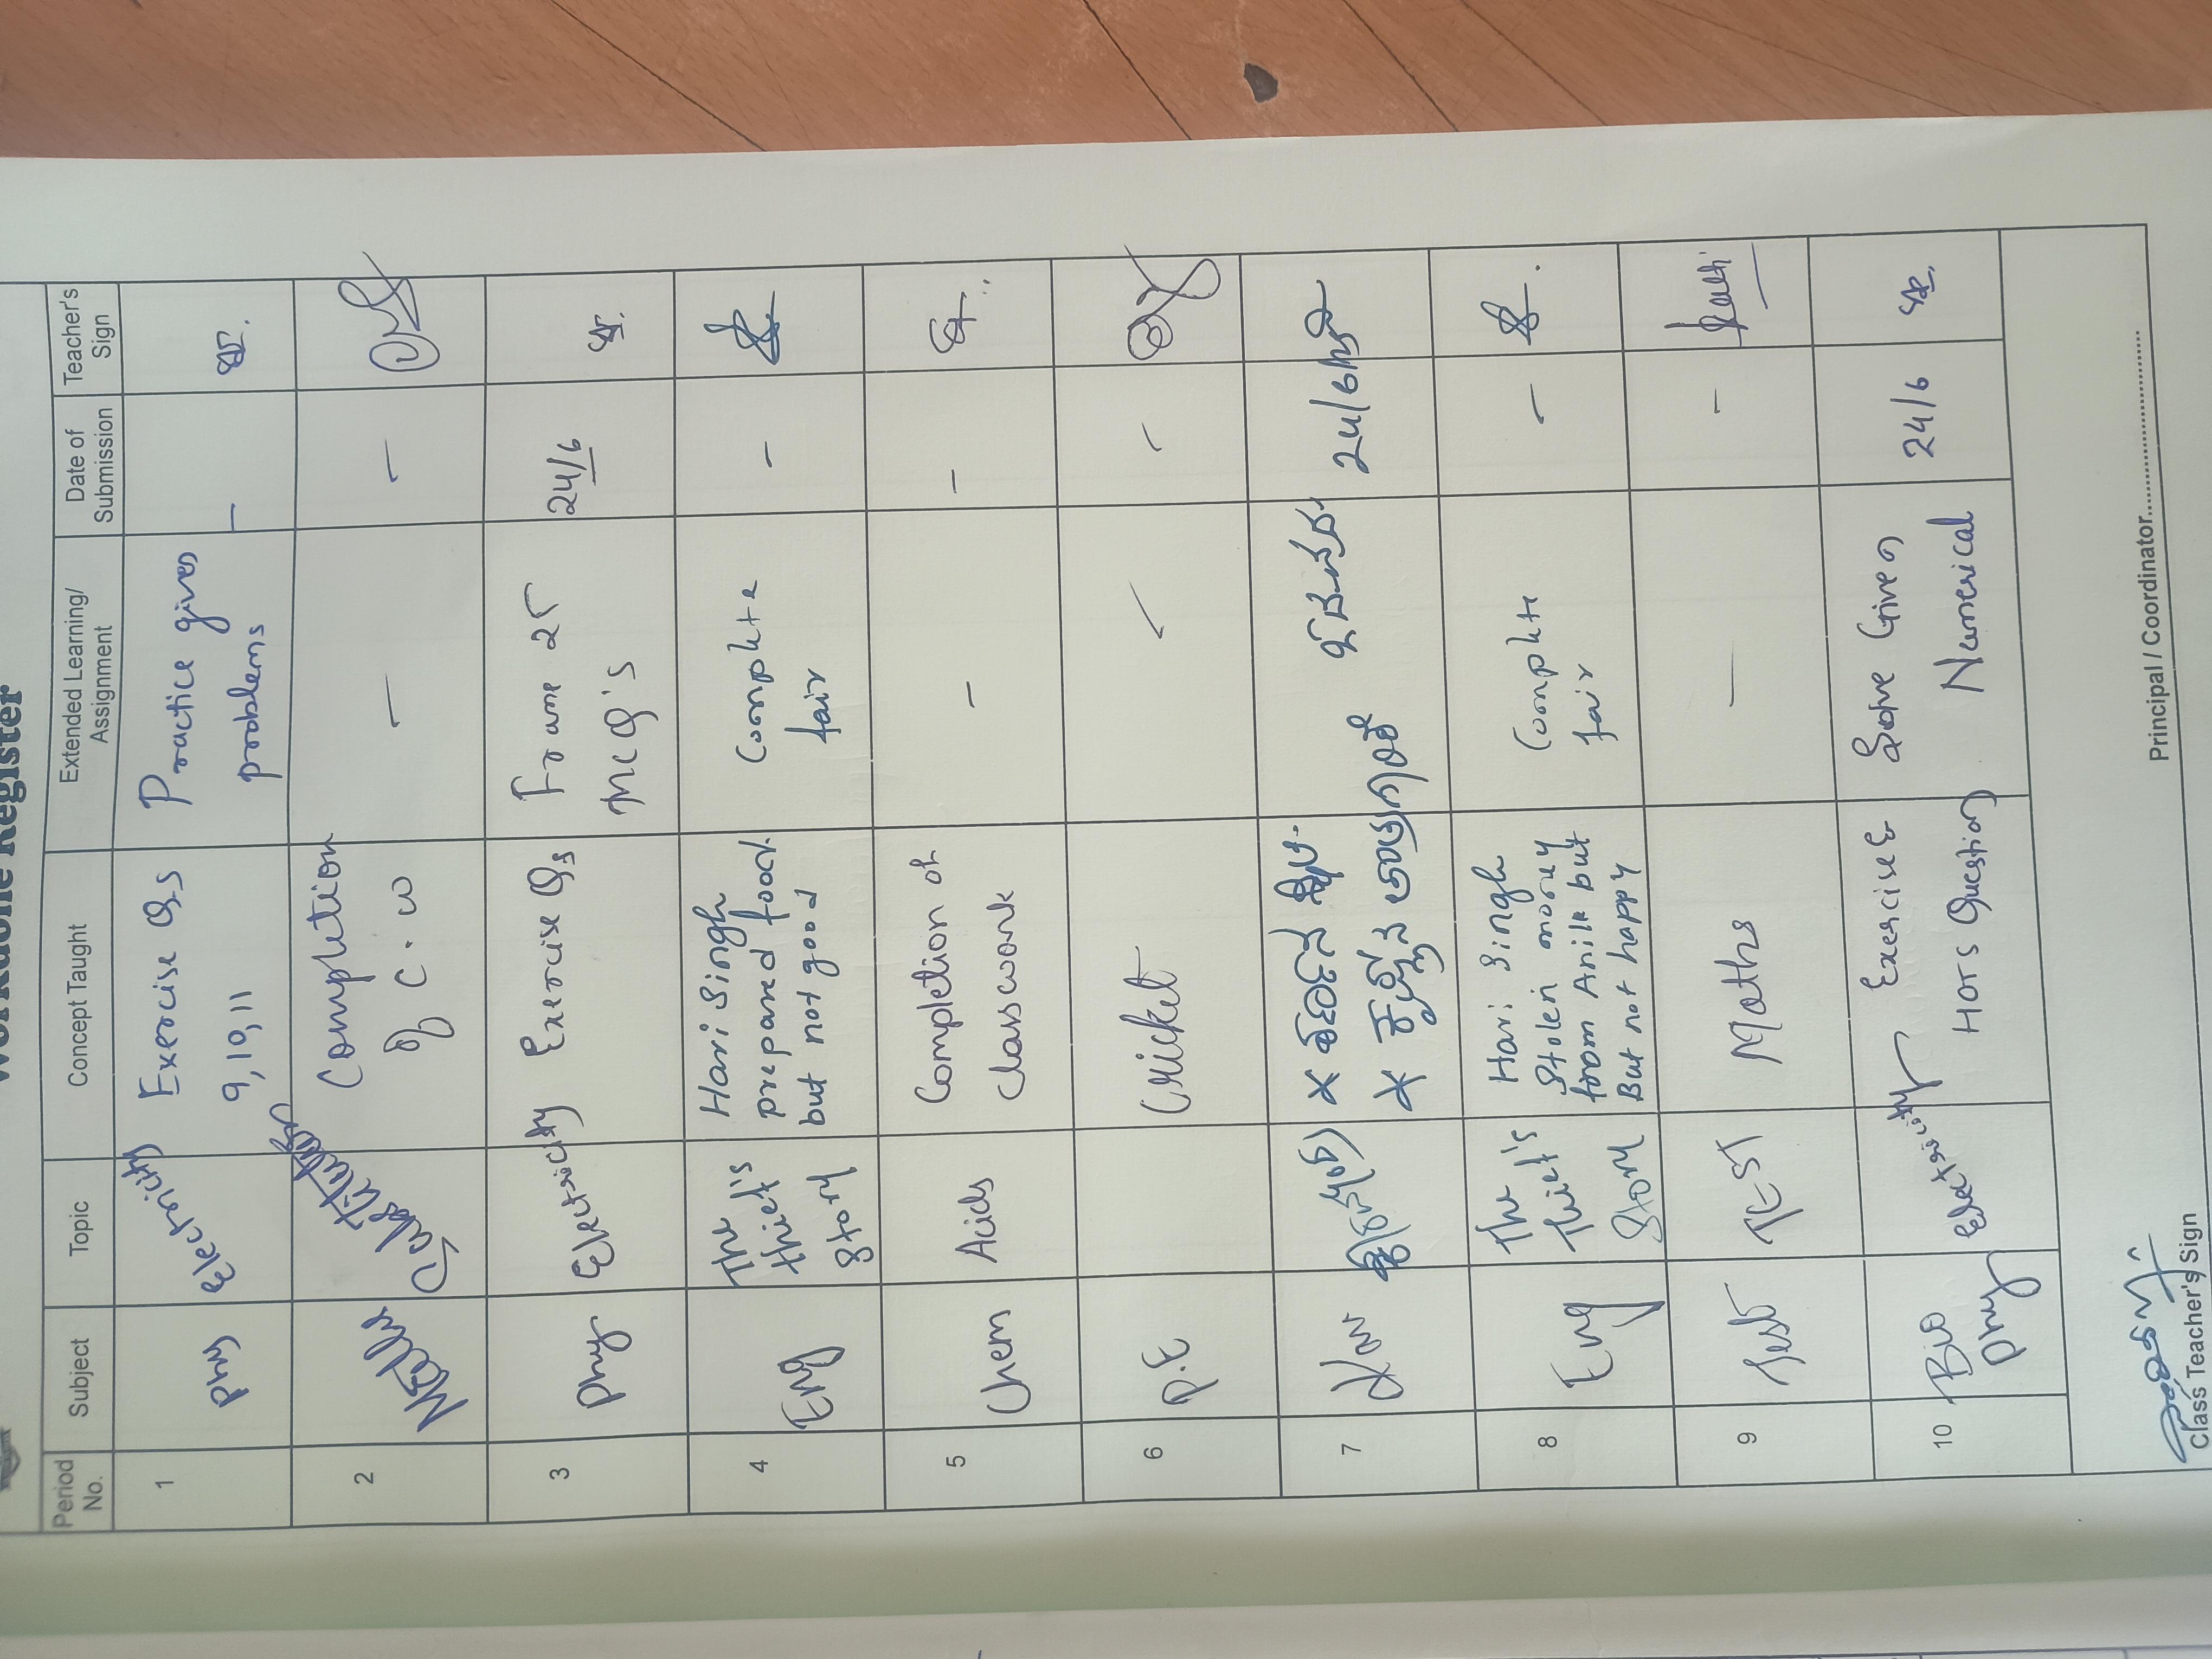 Work done Register
Period No. Subject Topic Concept Taught Extended Learning/ Assignment Date of Submission Teacher's Sign
1 Phy Electricity Exercise Qs Practice given
9, 10, 11 problems –
2 Maths Substitution Completion – –
of C.W
3 Phy Electricity Exercise Qs Frame 25 24/6
MCQ's
4 Eng The Hari Singh Complete –
thief's prepared food fair
story but not good
5 Chem Acids Completion of – –
classwork
6 P.E Cricket – –
7 Kan 24/6
8 Eng The Hari Singh Complete –
thief's Stolen money fair
Story from Anil but
But not happy
9 Test TEST Maths – –
10 Bio Electricity Exercise & Solve Given 24/6
Phy HOTS Question Numerical
Class Teacher's Sign Principal / Coordinator